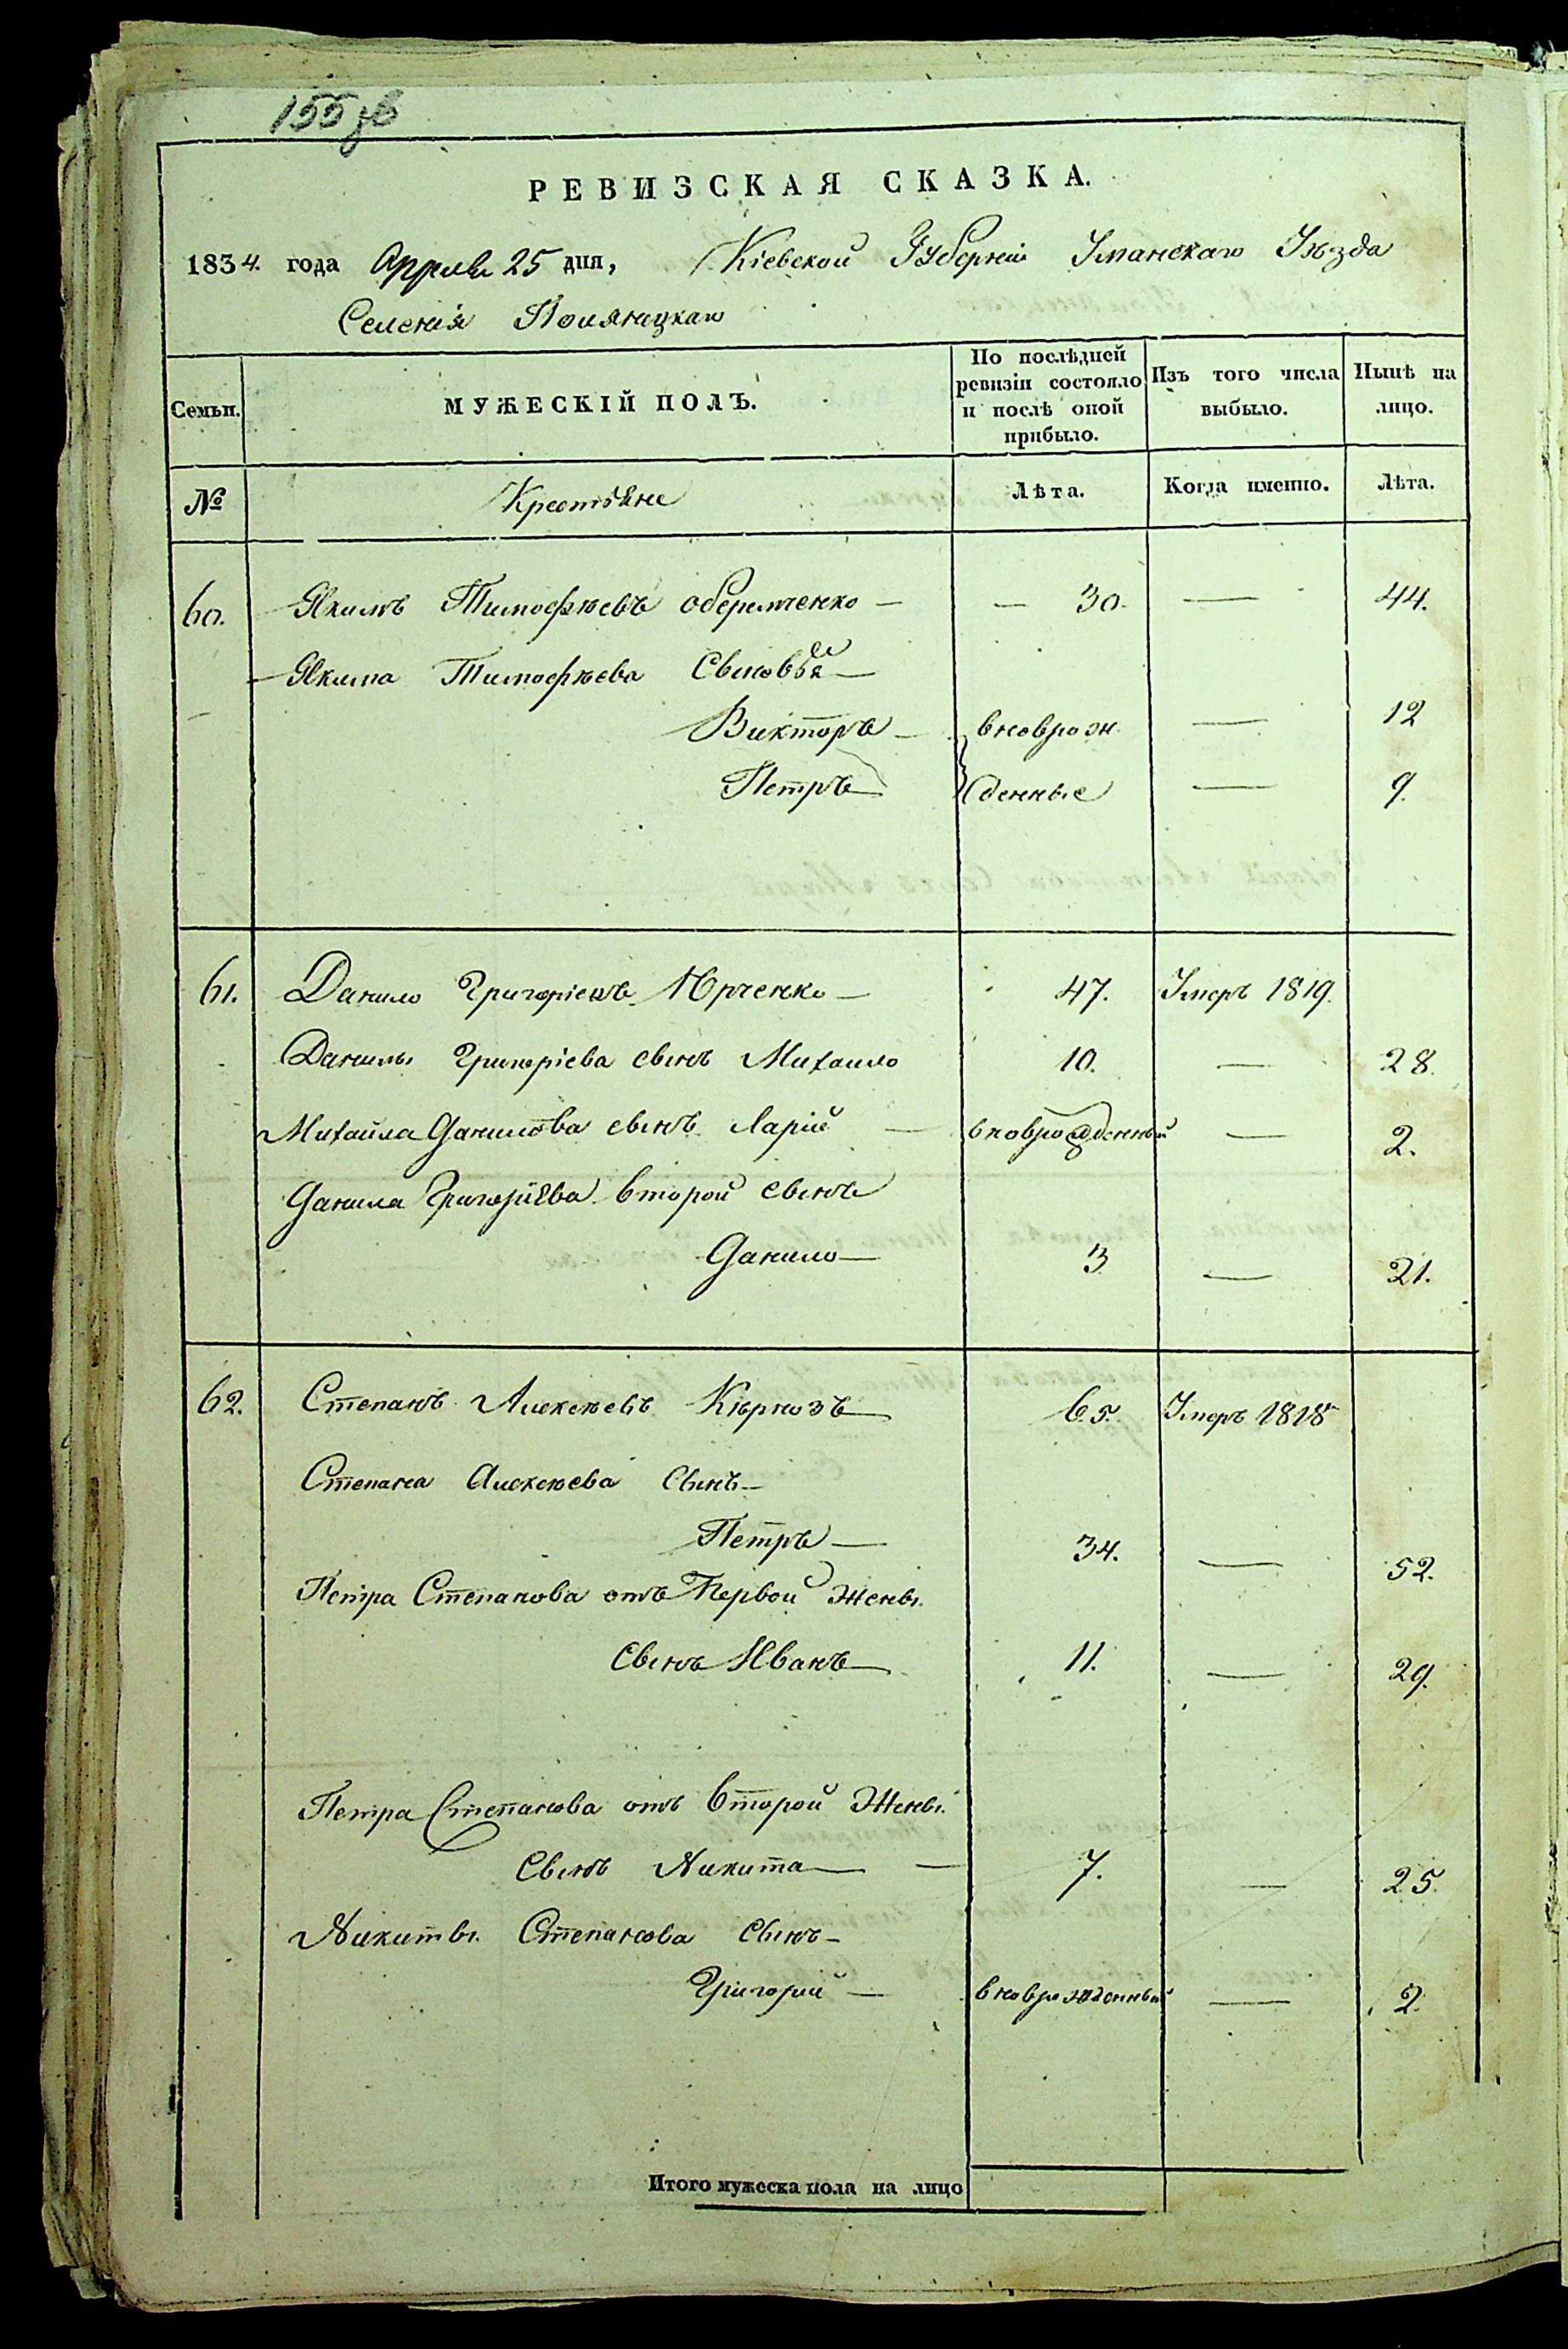 155 зв
РЕВИЗСКАЯ СКАЗКА.
1834. года Апреля 25 дня, Кіевской Губерніи Уманскаго Уѣзда
Селенія Поляницкаго
Семьи. МУЖЕСКІЙ ПОЛЪ. По послѣдней ревизіи состояло и послѣ оной прибыло. Изъ того числа выбыло. Нынѣ на лицо.
№ Крестьяне Лѣта. Когда именно. Лѣта.
60. Якимъ Тимофѣевъ — — 30. — 44.
Якима Тимофѣева Сыновья —
Викторъ — вноврож — 12
Петръ денные — 9.
61. Данило Григоріевъ Юрченко — 47. Умеръ 1819.
Данилы Григоріева сынъ Михаило 10. — 28.
Михайла Данилова сынъ Ларій — вноврожденный — 2.
Данила Григоріева второй сынъ
Данило — 3 — 21.
62. Степанъ Алексѣевъ — 65. Умеръ 1818
Степана Алексѣева Сынъ —
Петръ — 34. — 52.
Петра Степанова отъ Первой Жены.
Сынъ Иванъ — 11. — 29.
Петра Степанова отъ Второй Жены.
Сынъ Никита — — 7. — 25.
Никиты. Степанова Сынъ —
Григорій — вноврожденный — 2.
Итого мужеска пола на лицо